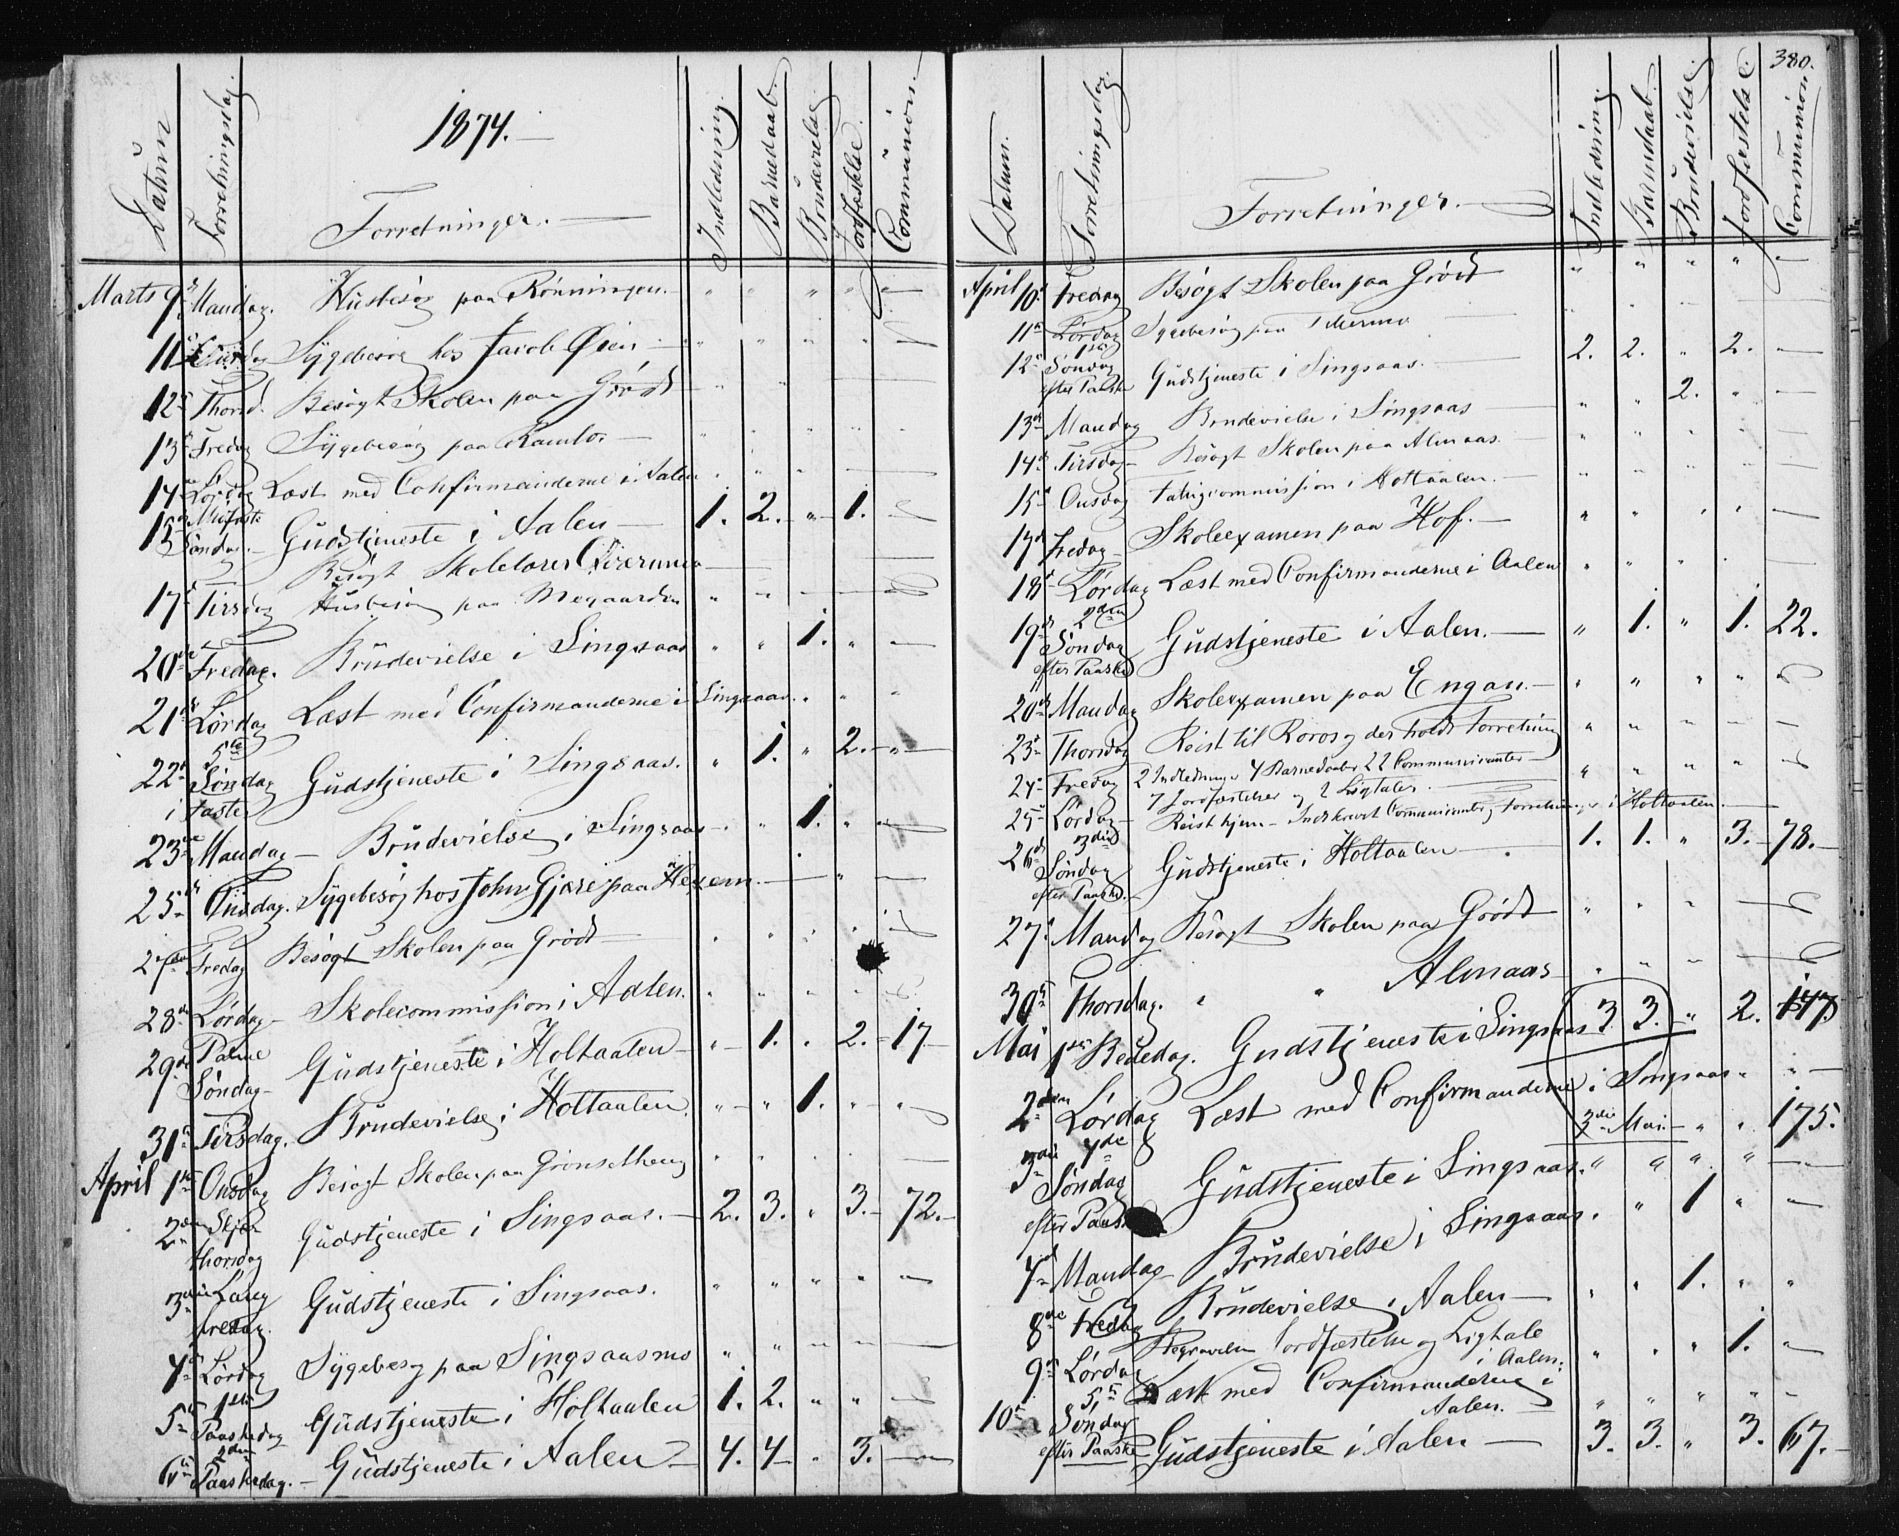 1874.
Datum Forretningsdag Forretninger. Indledning. Barnedaab. Brudevielse. Jordfæstelse. Communion.
Marts 9de Mandag. Husbesøg paa Rønningen. " " " " —
11te Sygebesøg hos Jacob Øien — " " " "
12te Thorsd. Besøgt Skolen paa Grødt " " "
13de Fredag Sygebesøg paa " " " "
14de Lørdag Læst med Confirmanderne i Aalen
15de Midfaste Søndag. Gudstjeneste i Aalen — 1. 2. " 1.
Besøgt
17de Tirsdag Husbesøg paa " " " " —
20de Fredag. Brudevielse i Singsaas " " 1. " —
21de Lørdag Læst med Confirmanderne i Singsaas. " " "
22de 5te Søndag i Faste Gudstjeneste i Singsaas. " 1. " 2. "
23de Mandag — Brudevielse i Singsaas — " 1. " —
25de Onsdag. Sygebesøg hos John Gjære paa — " —
27de Fredag Besøgt Skolen paa Grødt — " " " "
28de Lørdag Skolecommission i Aalen. " " " "
29de Palme Søndag — Gudstjeneste i Holtaalen — " 1. " 2. 17
31te Tirsdag. Brudevielse i Holtaalen. " " 1. " "
April 1ste Onsdag Besøgt Skolen paa " " " " —
2den Skjær thorsdag Gudstjeneste i Singsaas. — 2. 3. " 3. 72.
3die Lang fredag. Gudstjeneste i Singsaas. " " " " —
4de Lørdag Sygebesøg paa Singsaasmo " " " — —
5te 1ste Paaskedag Gudstjeneste i Holtaalen 1. 2. " "
6te 2den Paaskedag. — Gudstjeneste i Aalen — 4. 4 — " 3. —
380.
Datum. Forretningsdag Forretninger. — Indledning Barnedaab. Brudevielse. Jordfæstelse. Communion
April 10de Fredag Besøgt Skolen paa Grødt " " " "
11te Lørdag Sygebesøg paa
12te 1ste Søndag efter Paaske Gudstjeneste i Singsaas. 2. 2. " 2. —
13de Mandag Brudevielse i Singsaas — " " 2. " —
14de Tirsdag — Besøgt Skolen paa Almaas. " " " " —
15de Onsdag Fattigcommission i Holtaalen. — " " " "
17de Fredag — Skoleexamen paa Hof. — " " " " —
18de Lørdag Læst med Confirmanderne i Aalen " " " "
19de 2den Søndag efter Paaske Gudstjeneste i Aalen. — " 1. " 1. 22.
20de Mandag Skoleexamen paa Engan. — " " " "
23de Thorsdag Reist til Røros og der holdt Forretning " " — — —
24de Fredag 2 Indledninger 4 Barnedaaber 22 Communicanter — " " " "
7 Jordfæstelser og 2 Ligtaler. —
25de Lørdag — Reist hjem — Indskrevet Communicanter og Forretninger i Holtaalen.
26de 3die Søndag efter Paaske. Gudstjeneste i Holtaalen — 1. 1. " 3. 78.
27de Mandag Besøgt Skolen paa Grødt " " "
30te Thorsdag. " " Almaas " " "
Mai 1ste Bededag. Gudstjeneste i Singsaas 3. 3. " 2. 147
2den Lørdag Læst med Confirmanderne i Singsaas " " —
3die Mai — " " 175.
3die 4de Søndag efter Paaske Gudstjeneste i Singsaas. " " " " —
4de Mandag Brudevielse i Singsaas. " 1 " —
8de Fredag Brudevielse i Aalen — " " 1. " "
9de Lørdag Begravelse Jordfæstelse og Ligtale i Aalen. " " " 1. "
Læst med Confirmanderne i Aalen. — " " " "
10de 5te Søndag efter Paaske Gudstjeneste i Aalen — 3. 3. " 3. 67.